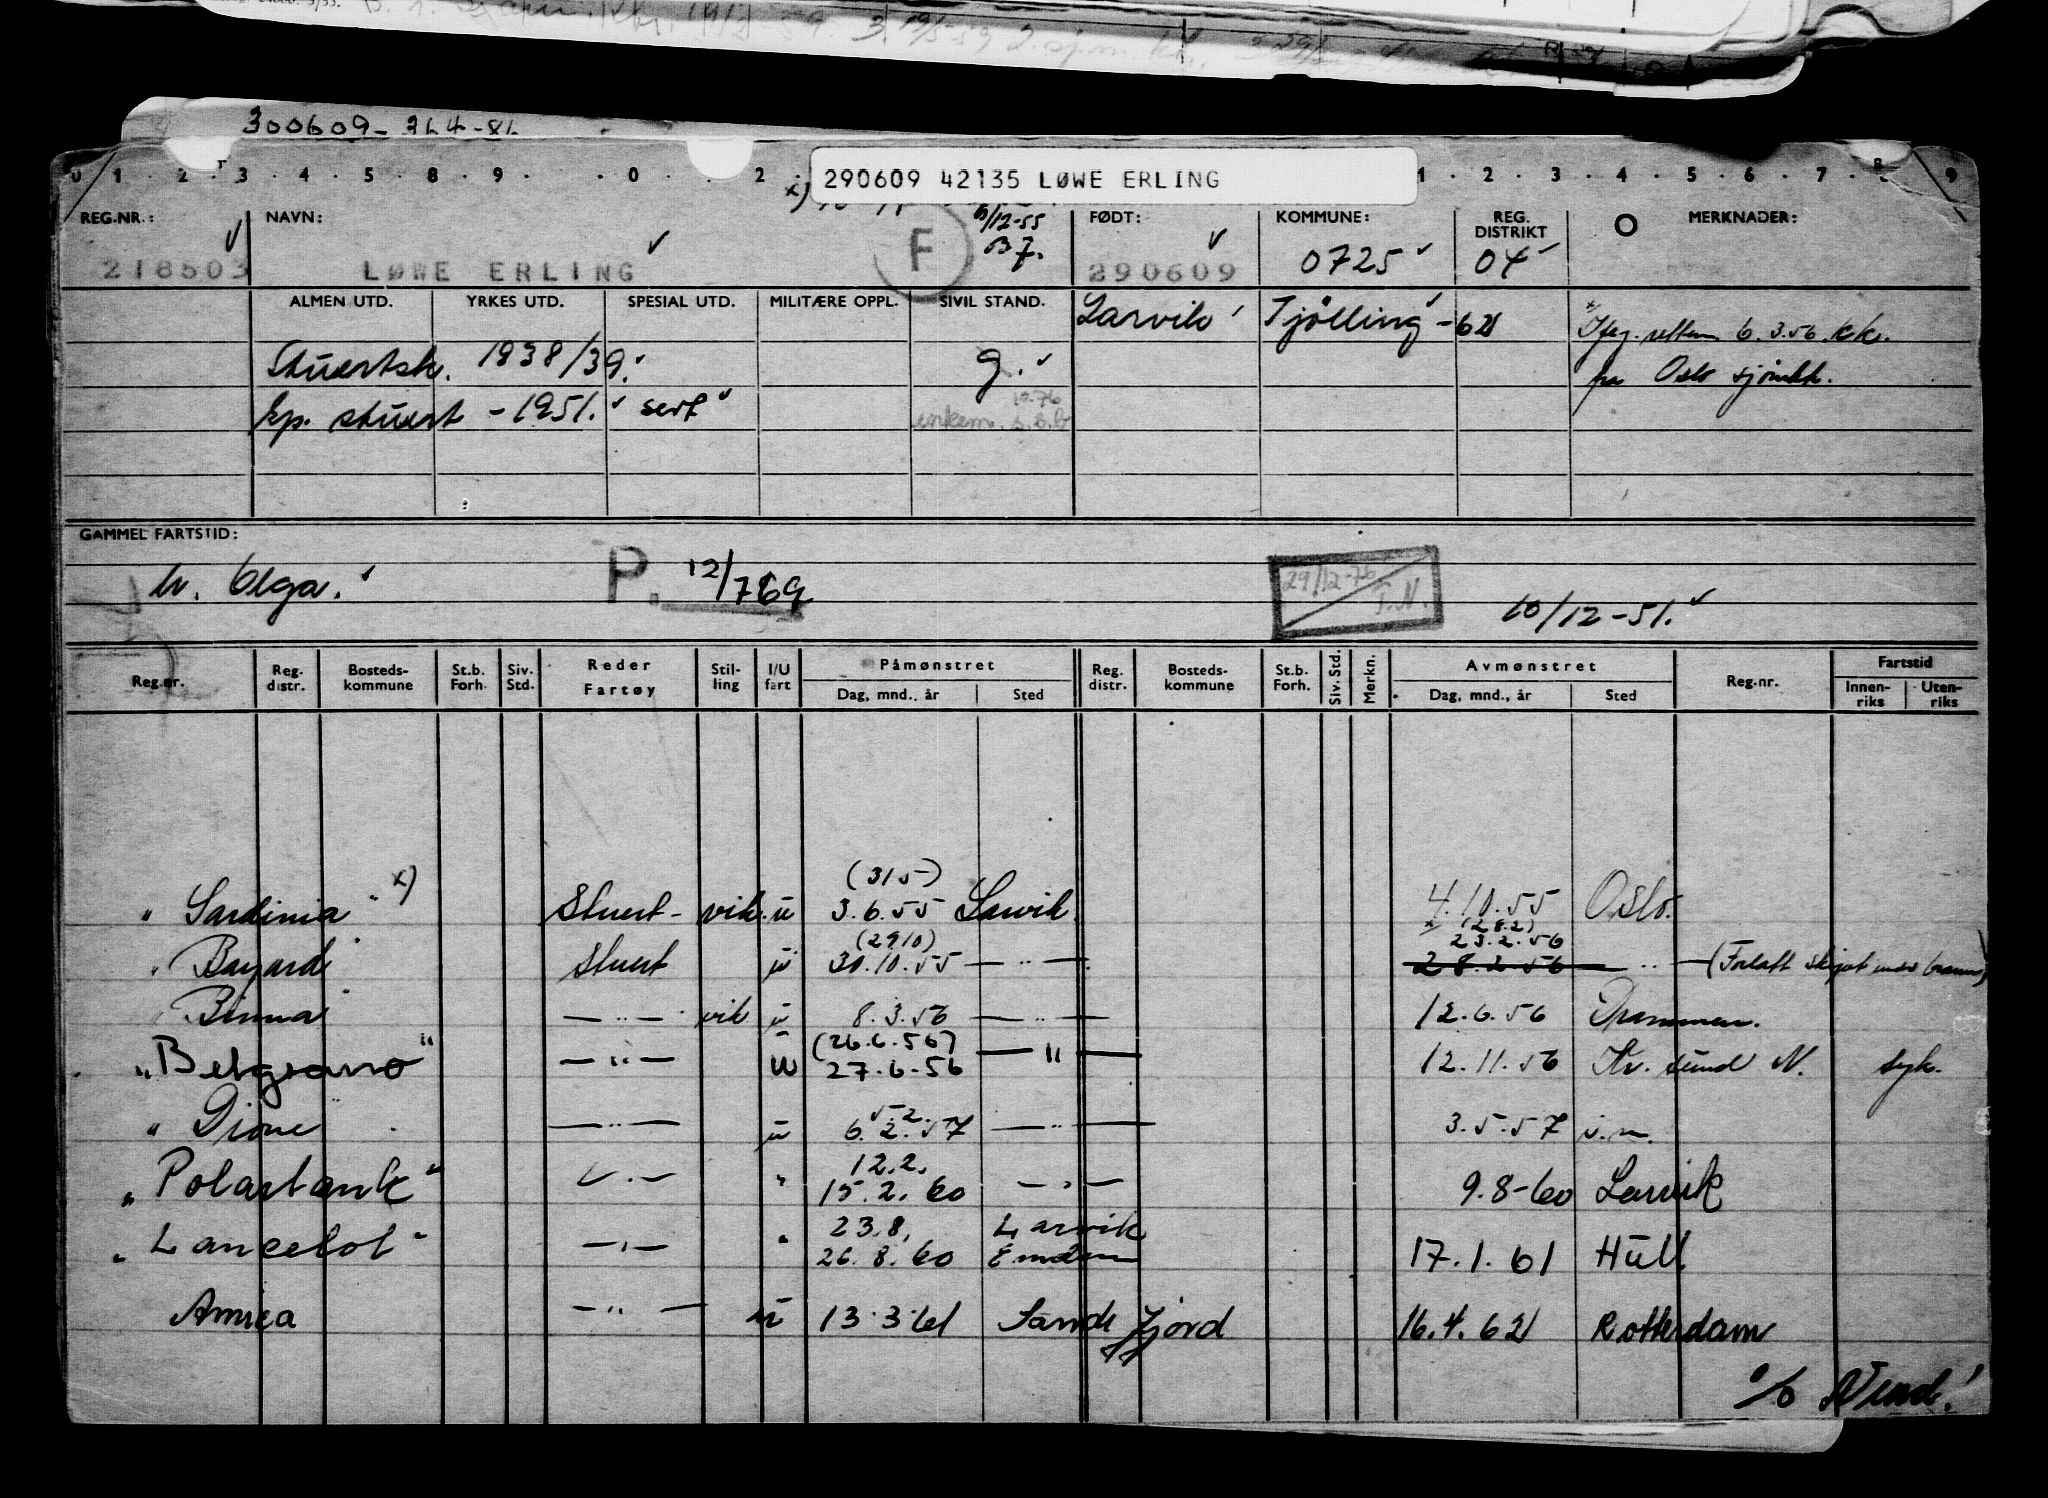 300609-
290609 42135 LØWE ERLING
0 1 2 3 4 5 8 9 0 2 1 2 3 4 5 6 7 8 9
REG.NR.: NAVN: 6/12-55 FØDT: KOMMUNE: REG. DISTRIKT MERKNADER:
218503 LØWE ERLING F B7. 290609 0725 04
ALMEN UTD. YRKES UTD. SPESIAL UTD. MILITÆRE OPPL. SIVIL STAND. Larvik Tjølling -62
6.3.56. kk.
Stuertsk. 1938/39. g. fra Oslo sjømkk.
kp. stuert - 1951. sert 10.76
enkem.
GAMMEL FARTSTID:
h. Olga. P. 12/769 29/12-76 T.N. 10/12-51.
Reg.nr. Reg. distr. Bosteds-kommune St.b. Forh. Siv. Std. Reder Fartøy Stil-ling I/U fart Påmønstret Dag, mnd., år Sted Reg. distr. Bosteds-kommune St.b. Forh. Siv. Std. Merkn. Avmønstret Dag, mnd., år Sted Reg.nr. Fartstid Innen-riks Uten-riks
(315)
"Sardinia" x) Stuert - vik. u 3.6.55 Larvik 4.10.55 Oslo.
(2910) x (282)
23.2.56
"Bayard" Stuert u 30.10.55 — " — 28.2.56 — " — (Forlatt skipet
"Binna" — " — vik u 8.3.56 — " — 12.6.56 Drammen.
(26.6.56)
"Belgrano" — " — u 27.6.56 — " — 12.11.56 Kr. sund N. syk.
5.2.
"Dione" — " — u 6.2.57 — " — 3.5.57
12.2.
"Polartank" — " — " 15.2.60 — " — 9.8-60 Larvik
23.8. Larvik
"Lancelot" — " — " 26.8.60 Emden 17.1.61 Hull
Amica — " — u 13.3.61 Sandefjord 16.4.62 Rotterdam
% Vend!